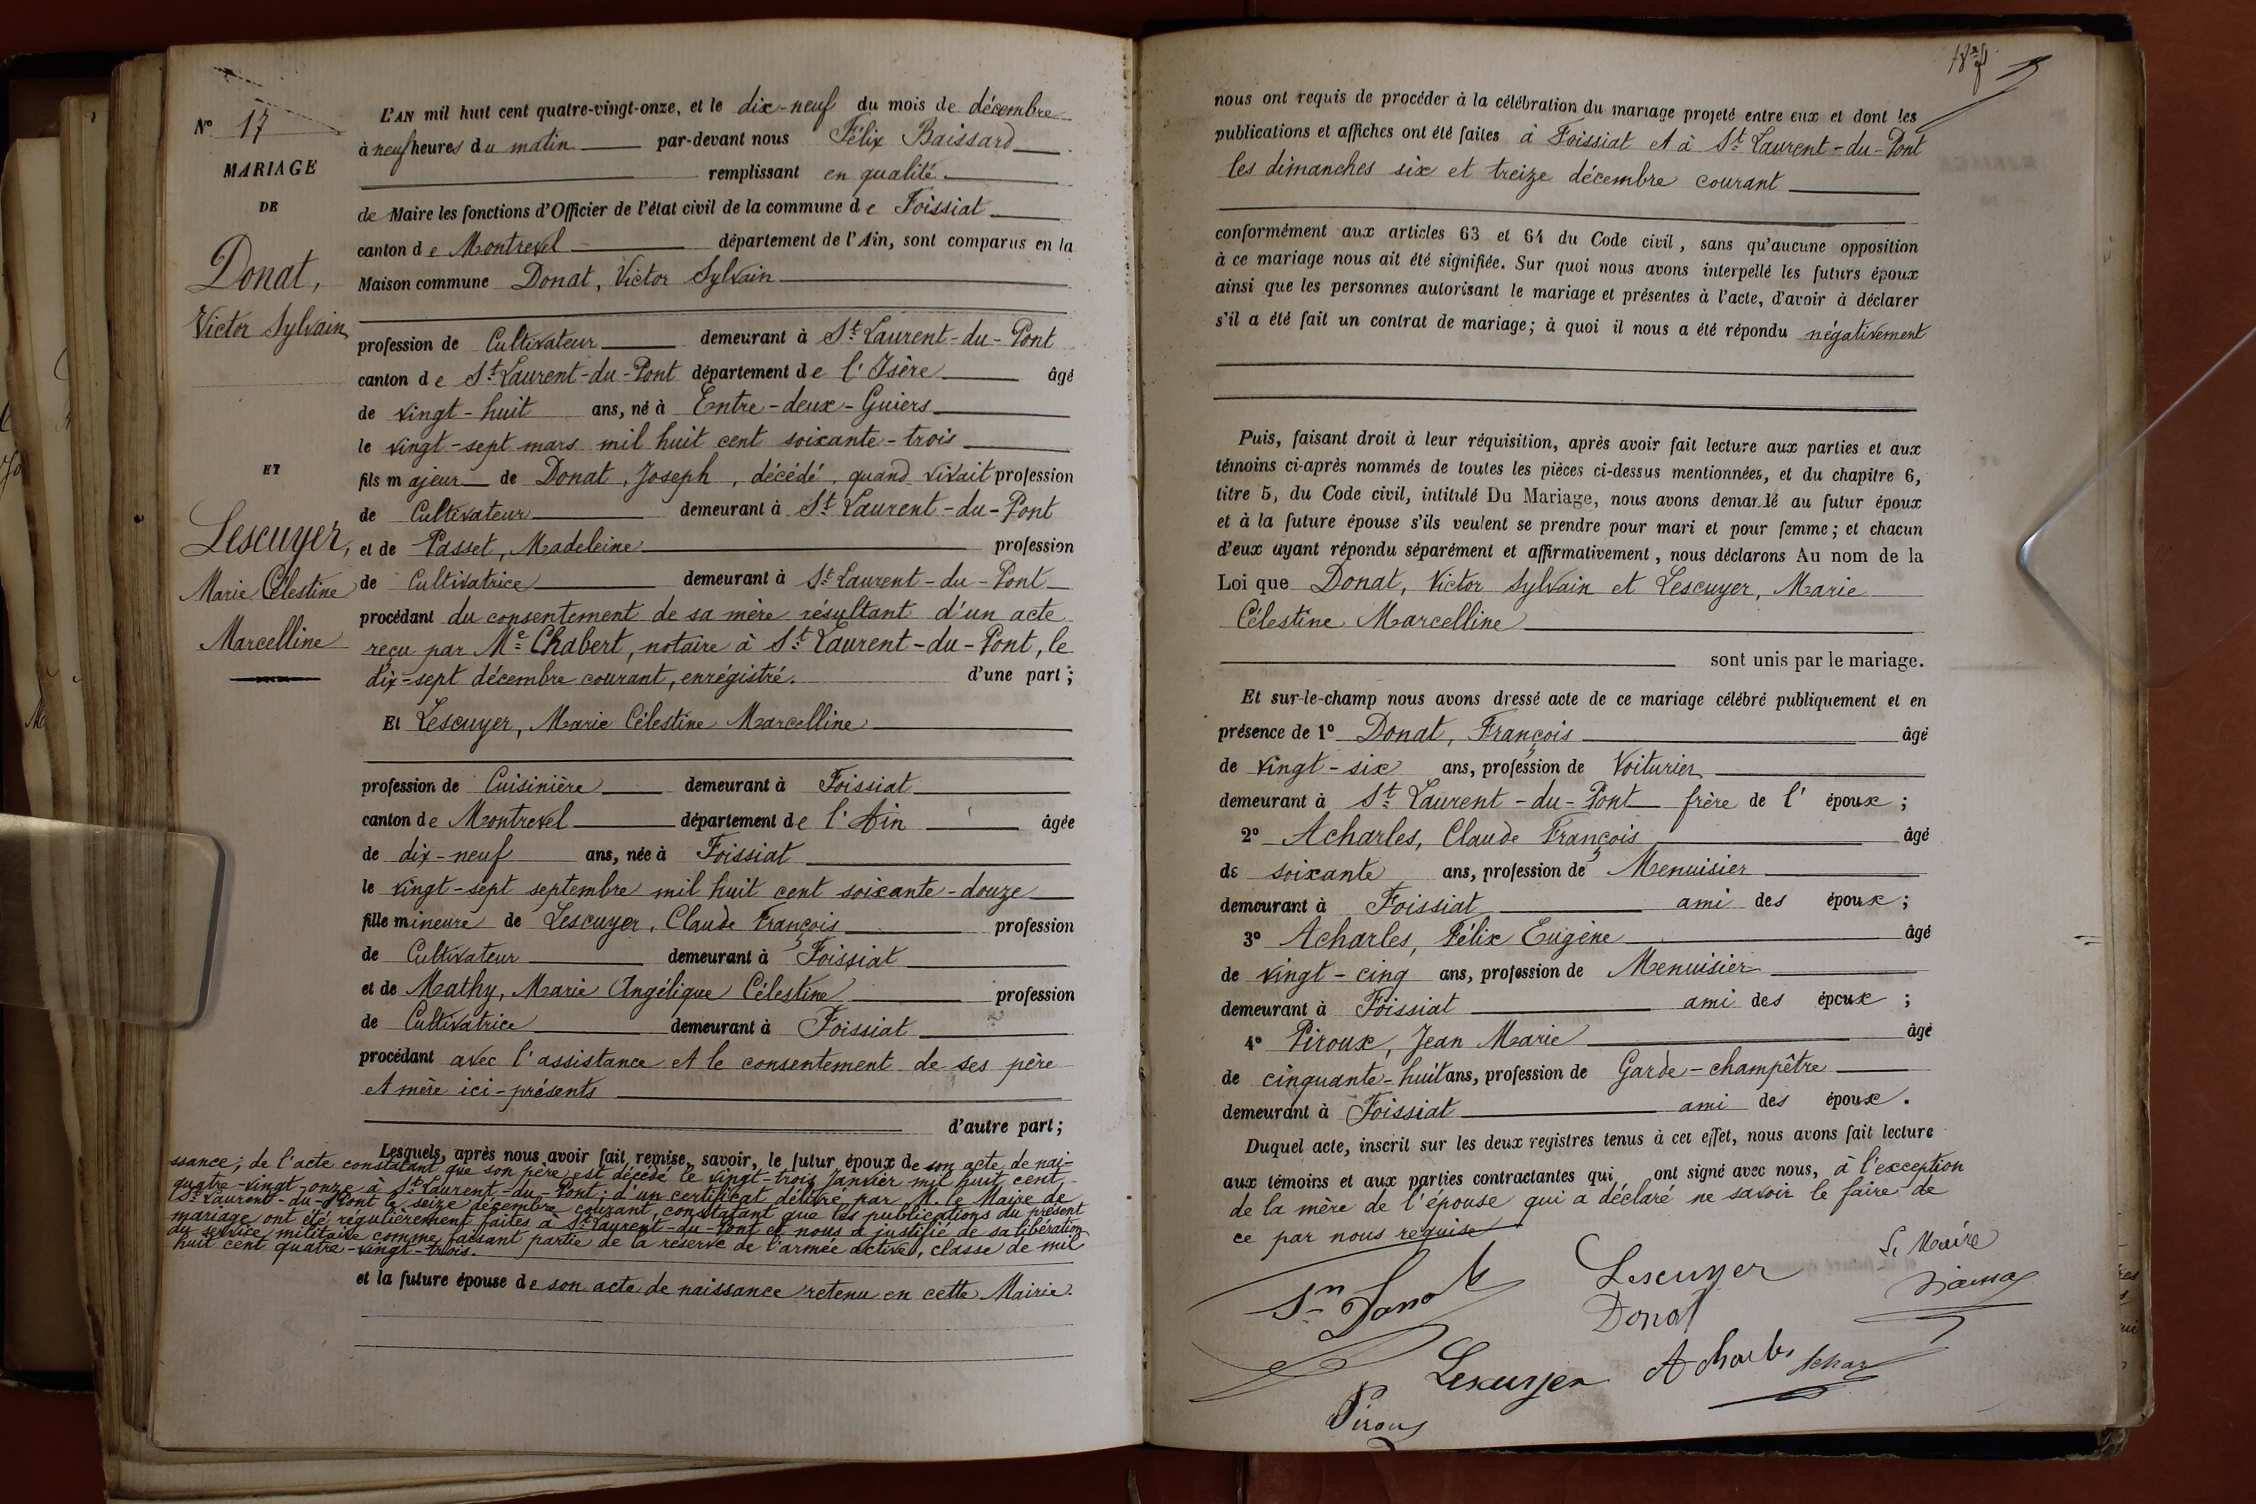 N° 17
MARIAGE
DE
Donat,
Victor Sylvain
ET
Lescuyer,
Marie Célestine
Marcelline
L'AN mil huit cent quatre-vingt-onze, et le dix-neuf du mois de décembre
à neuf heures du matin par-devant nous Félix Baissard
remplissant en qualité
de Maire les fonctions d'Officier de l'état civil de la commune de Foissiat
canton de Montrevel département de l'Ain, sont comparus en la
Maison commune Donat, Victor Sylvain
profession de Cultivateur demeurant à St Laurent-du-Pont
canton de St Laurent-du-Pont département de l'Isère âgé
de vingt-huit ans, né à Entre-deux-Guiers
le vingt-sept mars mil huit cent soixante-trois
fils majeur de Donat, Joseph, décédé, quand vivait profession
de Cultivateur demeurant à St Laurent-du-Pont
et de Passet, Madeleine profession
de Cultivatrice demeurant à St Laurent-du-Pont
procédant du consentement de sa mère résultant d'un acte
reçu par Me Chabert, notaire à St Laurent-du-Pont, le
dix-sept décembre courant, enrégistré. d'une part;
Et Lescuyer, Marie Célestine Marcelline
profession de Cuisinière demeurant à Foissiat
canton de Montrevel département de l'Ain âgée
de dix-neuf ans, née à Foissiat
le vingt-sept septembre mil huit cent soixante-douze
fille mineure de Lescuyer, Claude François profession
de Cultivateur demeurant à Foissiat
et de Mathy, Marie Angélique Célestine profession
de Cultivatrice demeurant à Foissiat
procédant avec l'assistance et le consentement de ses père
et mère ici-présents
d'autre part;
Lesquels, après nous avoir fait remise, savoir, le futur époux de son acte de nai-
ssance; de l'acte constatant que son père est décédé le vingt-trois Janvier mil huit cent
quatre-vingt-onze à St Laurent-du-Pont; d'un certificat délivré par M. le Maire de
St Laurent-du-Pont le seize décembre courant, constatant que les publications du présent
mariage ont été régulièrement faites à St Laurent-du-Pont et nous a justifié de sa libération
du service militaire comme faisant partie de la réserve de l'armée active, classe de mil
huit cent quatre-vingt-trois.
et la future épouse de son acte de naissance retenu en cette Mairie.
187
nous ont requis de procéder à la célébration du mariage projeté entre eux et dont les
publications et affiches ont été faites à Foissiat et à St Laurent-du-Pont
les dimanches six et treize décembre courant
conformément aux articles 63 et 64 du Code civil, sans qu'aucune opposition
à ce mariage nous ait été signifiée. Sur quoi nous avons interpellé les futurs époux
ainsi que les personnes autorisant le mariage et présentes à l'acte, d'avoir à déclarer
s'il a été fait un contrat de mariage; à quoi il nous a été répondu négativement
Puis, faisant droit à leur réquisition, après avoir fait lecture aux parties et aux
témoins ci-après nommés de toutes les pièces ci-dessus mentionnées, et du chapitre 6,
titre 5, du Code civil, intitulé Du Mariage, nous avons demandé au futur époux
et à la future épouse s'ils veulent se prendre pour mari et pour femme; et chacun
d'eux ayant répondu séparément et affirmativement, nous déclarons Au nom de la
Loi que Donat, Victor Sylvain et Lescuyer, Marie
Célestine Marcelline
sont unis par le mariage.
Et sur-le-champ nous avons dressé acte de ce mariage célébré publiquement et en
présence de 1° Donat, François âgé
de vingt-six ans, profession de Voiturier
demeurant à St Laurent-du-Pont frère de l'époux;
2° Acharles, Claude François âgé
de soixante ans, profession de Menuisier
demeurant à Foissiat ami des époux;
3° Acharles, Félix Eugène âgé
de vingt-cinq ans, profession de Menuisier
demeurant à Foissiat ami des époux;
4° Piroux, Jean Marie âgé
de cinquante-huit ans, profession de Garde-champêtre
demeurant à Foissiat ami des époux.
Duquel acte, inscrit sur les deux registres tenus à cet effet, nous avons fait lecture
aux témoins et aux parties contractantes qui ont signé avec nous, à l'exception
de la mère de l'épouse qui a déclaré ne savoir le faire de
ce par nous requise
Le Maire
Lescuyer
Donat
Lescuyer Acharles
Piroux